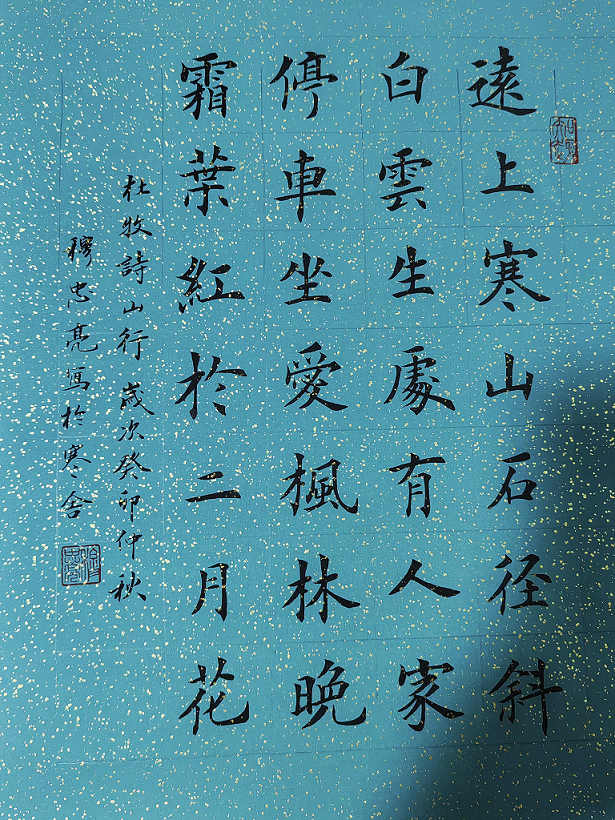 遠上寒山石径斜
白雲生處有人家
停車坐愛楓林晚
霜葉紅於二月花
杜牧詩山行 歲次癸卯仲秋
穆忠亮寫於寒舍